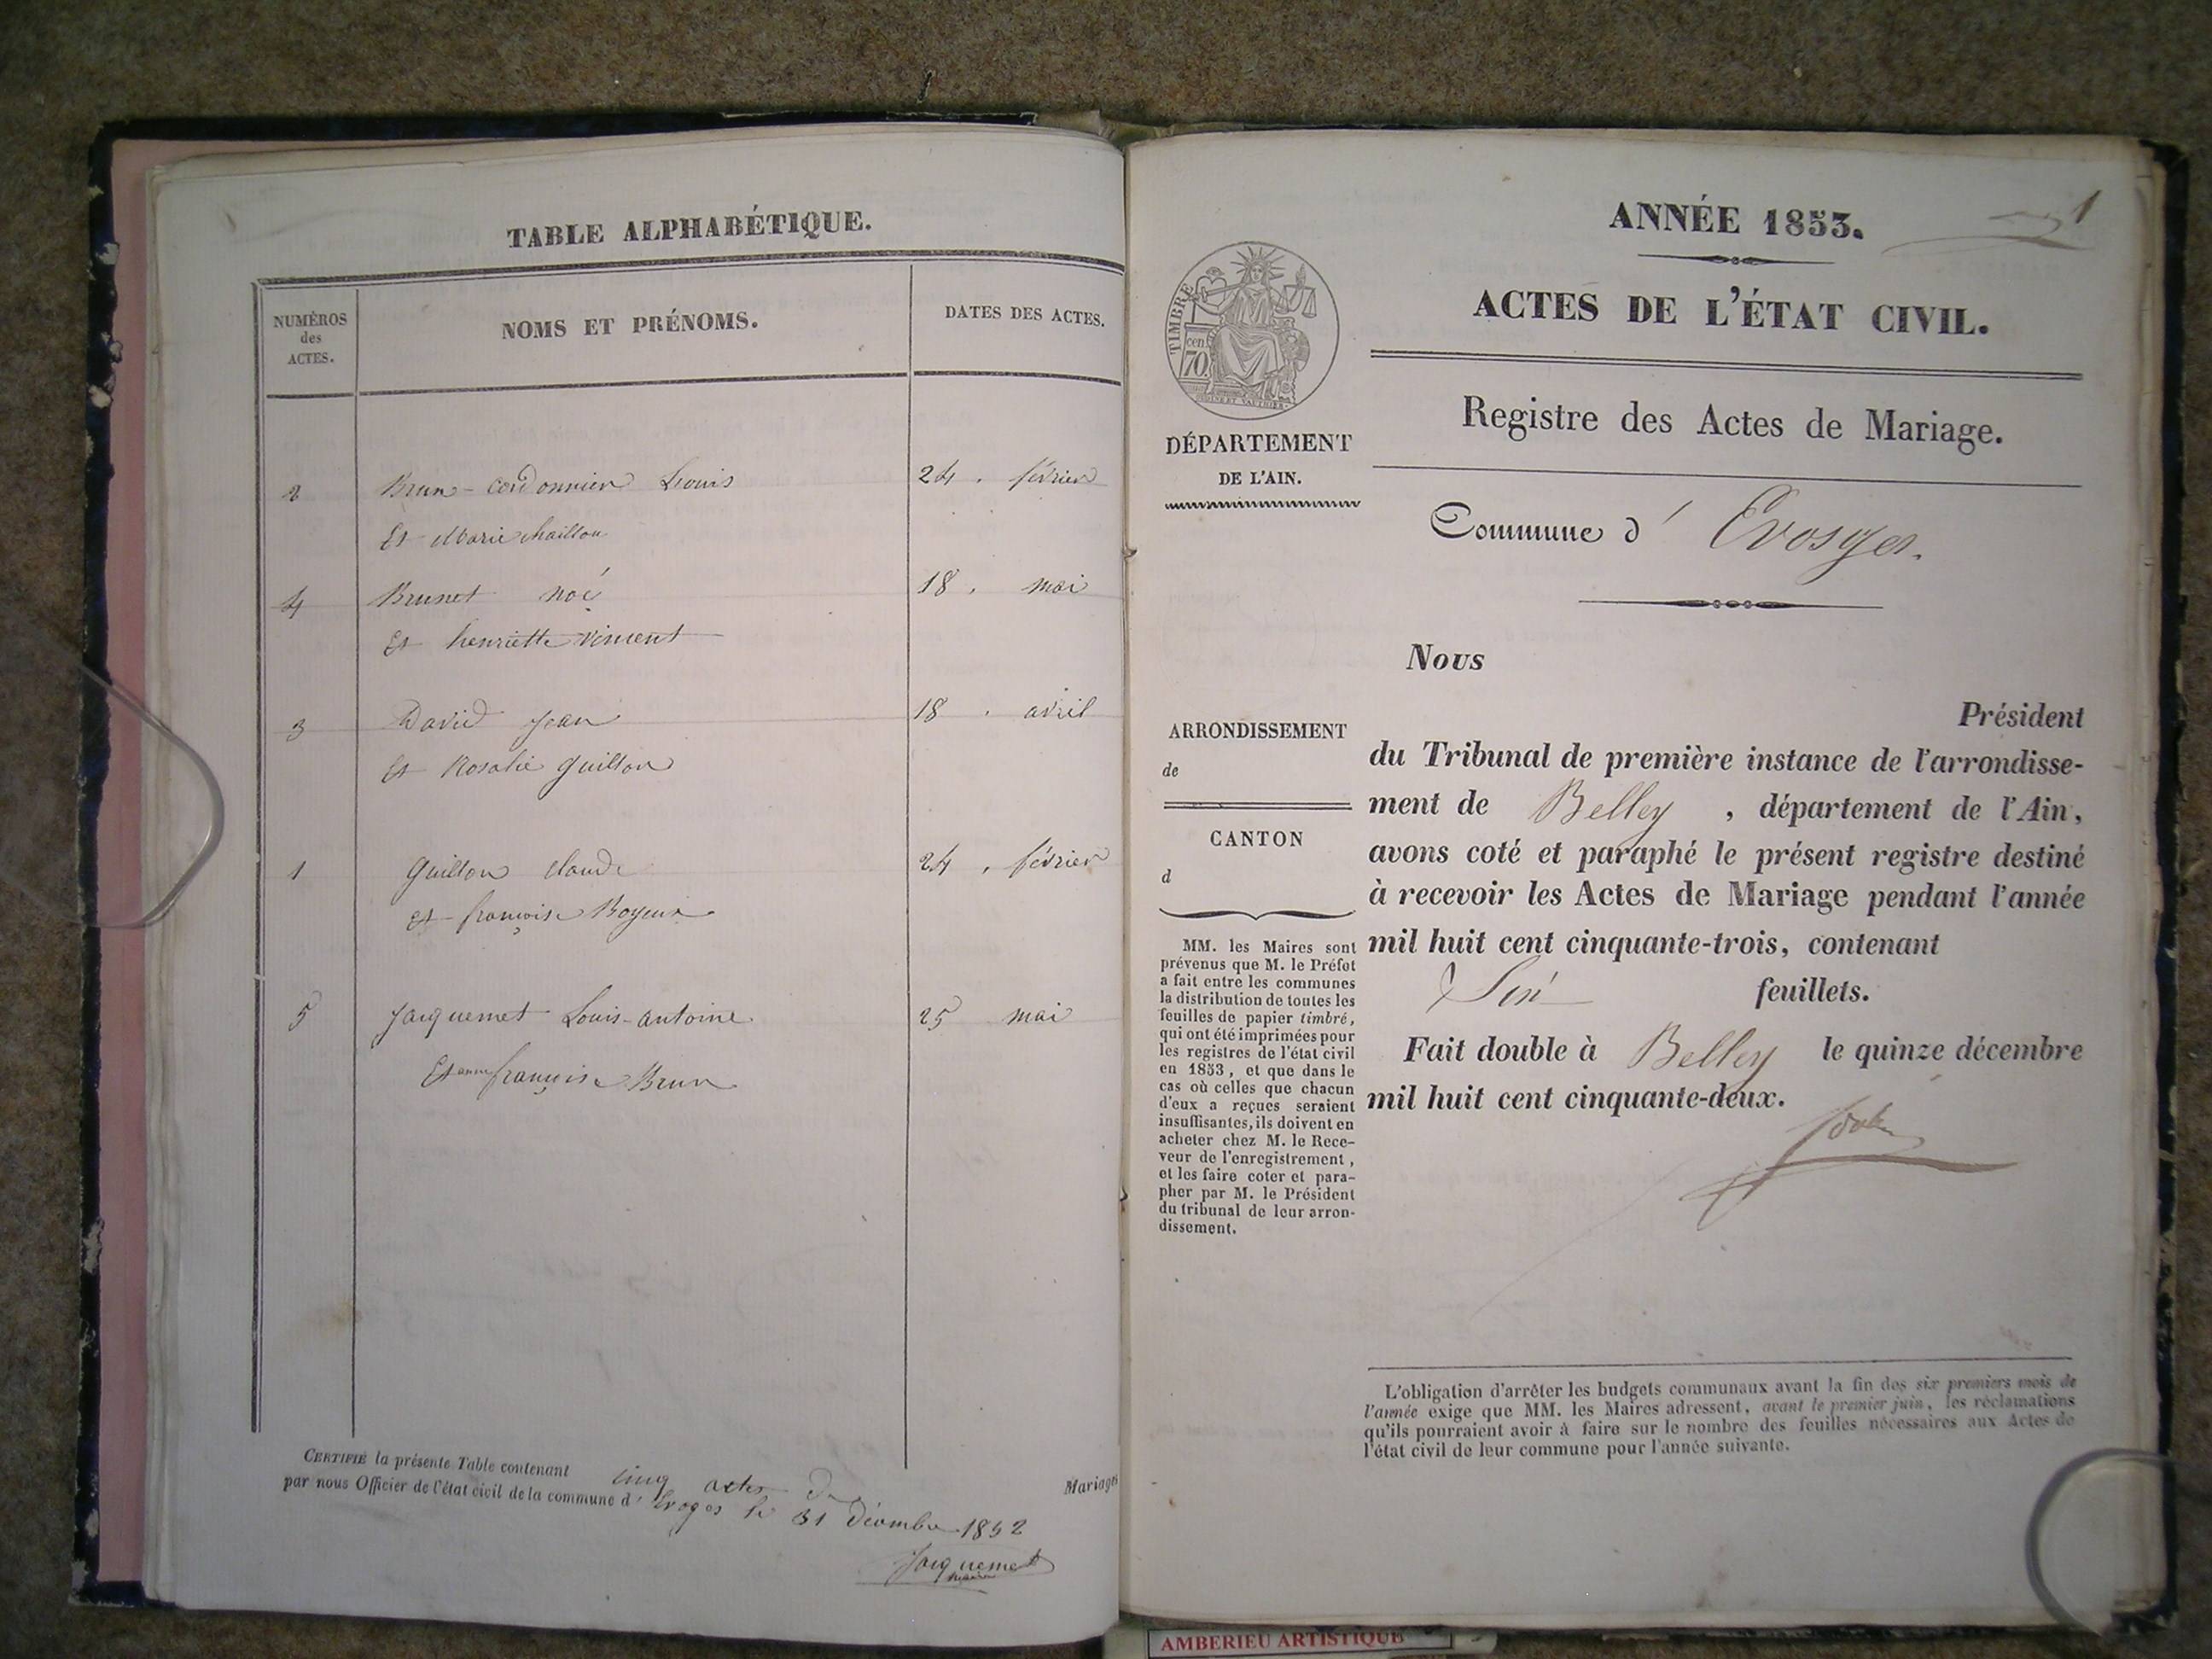 TABLE ALPHABÉTIQUE.
NUMÉROS
des
ACTES.
NOMS ET PRÉNOMS.
DATES DES ACTES.
2 Brun-Cordonnier Louis 24. février
Et Marie Maillon
4 Brunet Noé 18. mai
Et henriette vincent
3 David Jean 18. avril
Et Rosalie Guillon
1 Guillon Claude 24. février
Et françoise Boyeux
5 Jacquemet Louis-Antoine 25 mai
Et anne françoise Brun
CERTIFIÉ la présente Table contenant cinq actes de Mariages
par nous Officier de l'état civil de la commune d' Evoges le 31 Décembre 1852
Jacquemet
maire
1
ANNÉE 1853.
ACTES DE L'ÉTAT CIVIL.
TIMBRE
cen
70
Registre des Actes de Mariage.
DÉPARTEMENT
DE L'AIN.
Commune d' Evosges.
Nous
Président
ARRONDISSEMENT
de
CANTON
d
du Tribunal de première instance de l'arrondisse-
ment de Belley , département de l'Ain,
avons coté et paraphé le présent registre destiné
à recevoir les Actes de Mariage pendant l'année
mil huit cent cinquante-trois, contenant
Six feuillets.
Fait double à Belley le quinze décembre
mil huit cent cinquante-deux.
MM. les Maires sont
prévenus que M. le Préfet
a fait entre les communes
la distribution de toutes les
feuilles de papier timbré,
qui ont été imprimées pour
les registres de l'état civil
en 1853, et que dans le
cas où celles que chacun
d'eux a reçues seraient
insuffisantes, ils doivent en
acheter chez M. le Rece-
veur de l'enregistrement,
et les faire coter et para-
pher par M. le Président
du tribunal de leur arron-
dissement.
L'obligation d'arrêter les budgets communaux avant la fin des six premiers mois de
l'année exige que MM. les Maires adressent, avant le premier juin, les réclamations
qu'ils pourraient avoir à faire sur le nombre des feuilles nécessaires aux Actes de
l'état civil de leur commune pour l'année suivante.
AMBERIEU ARTISTIQUE